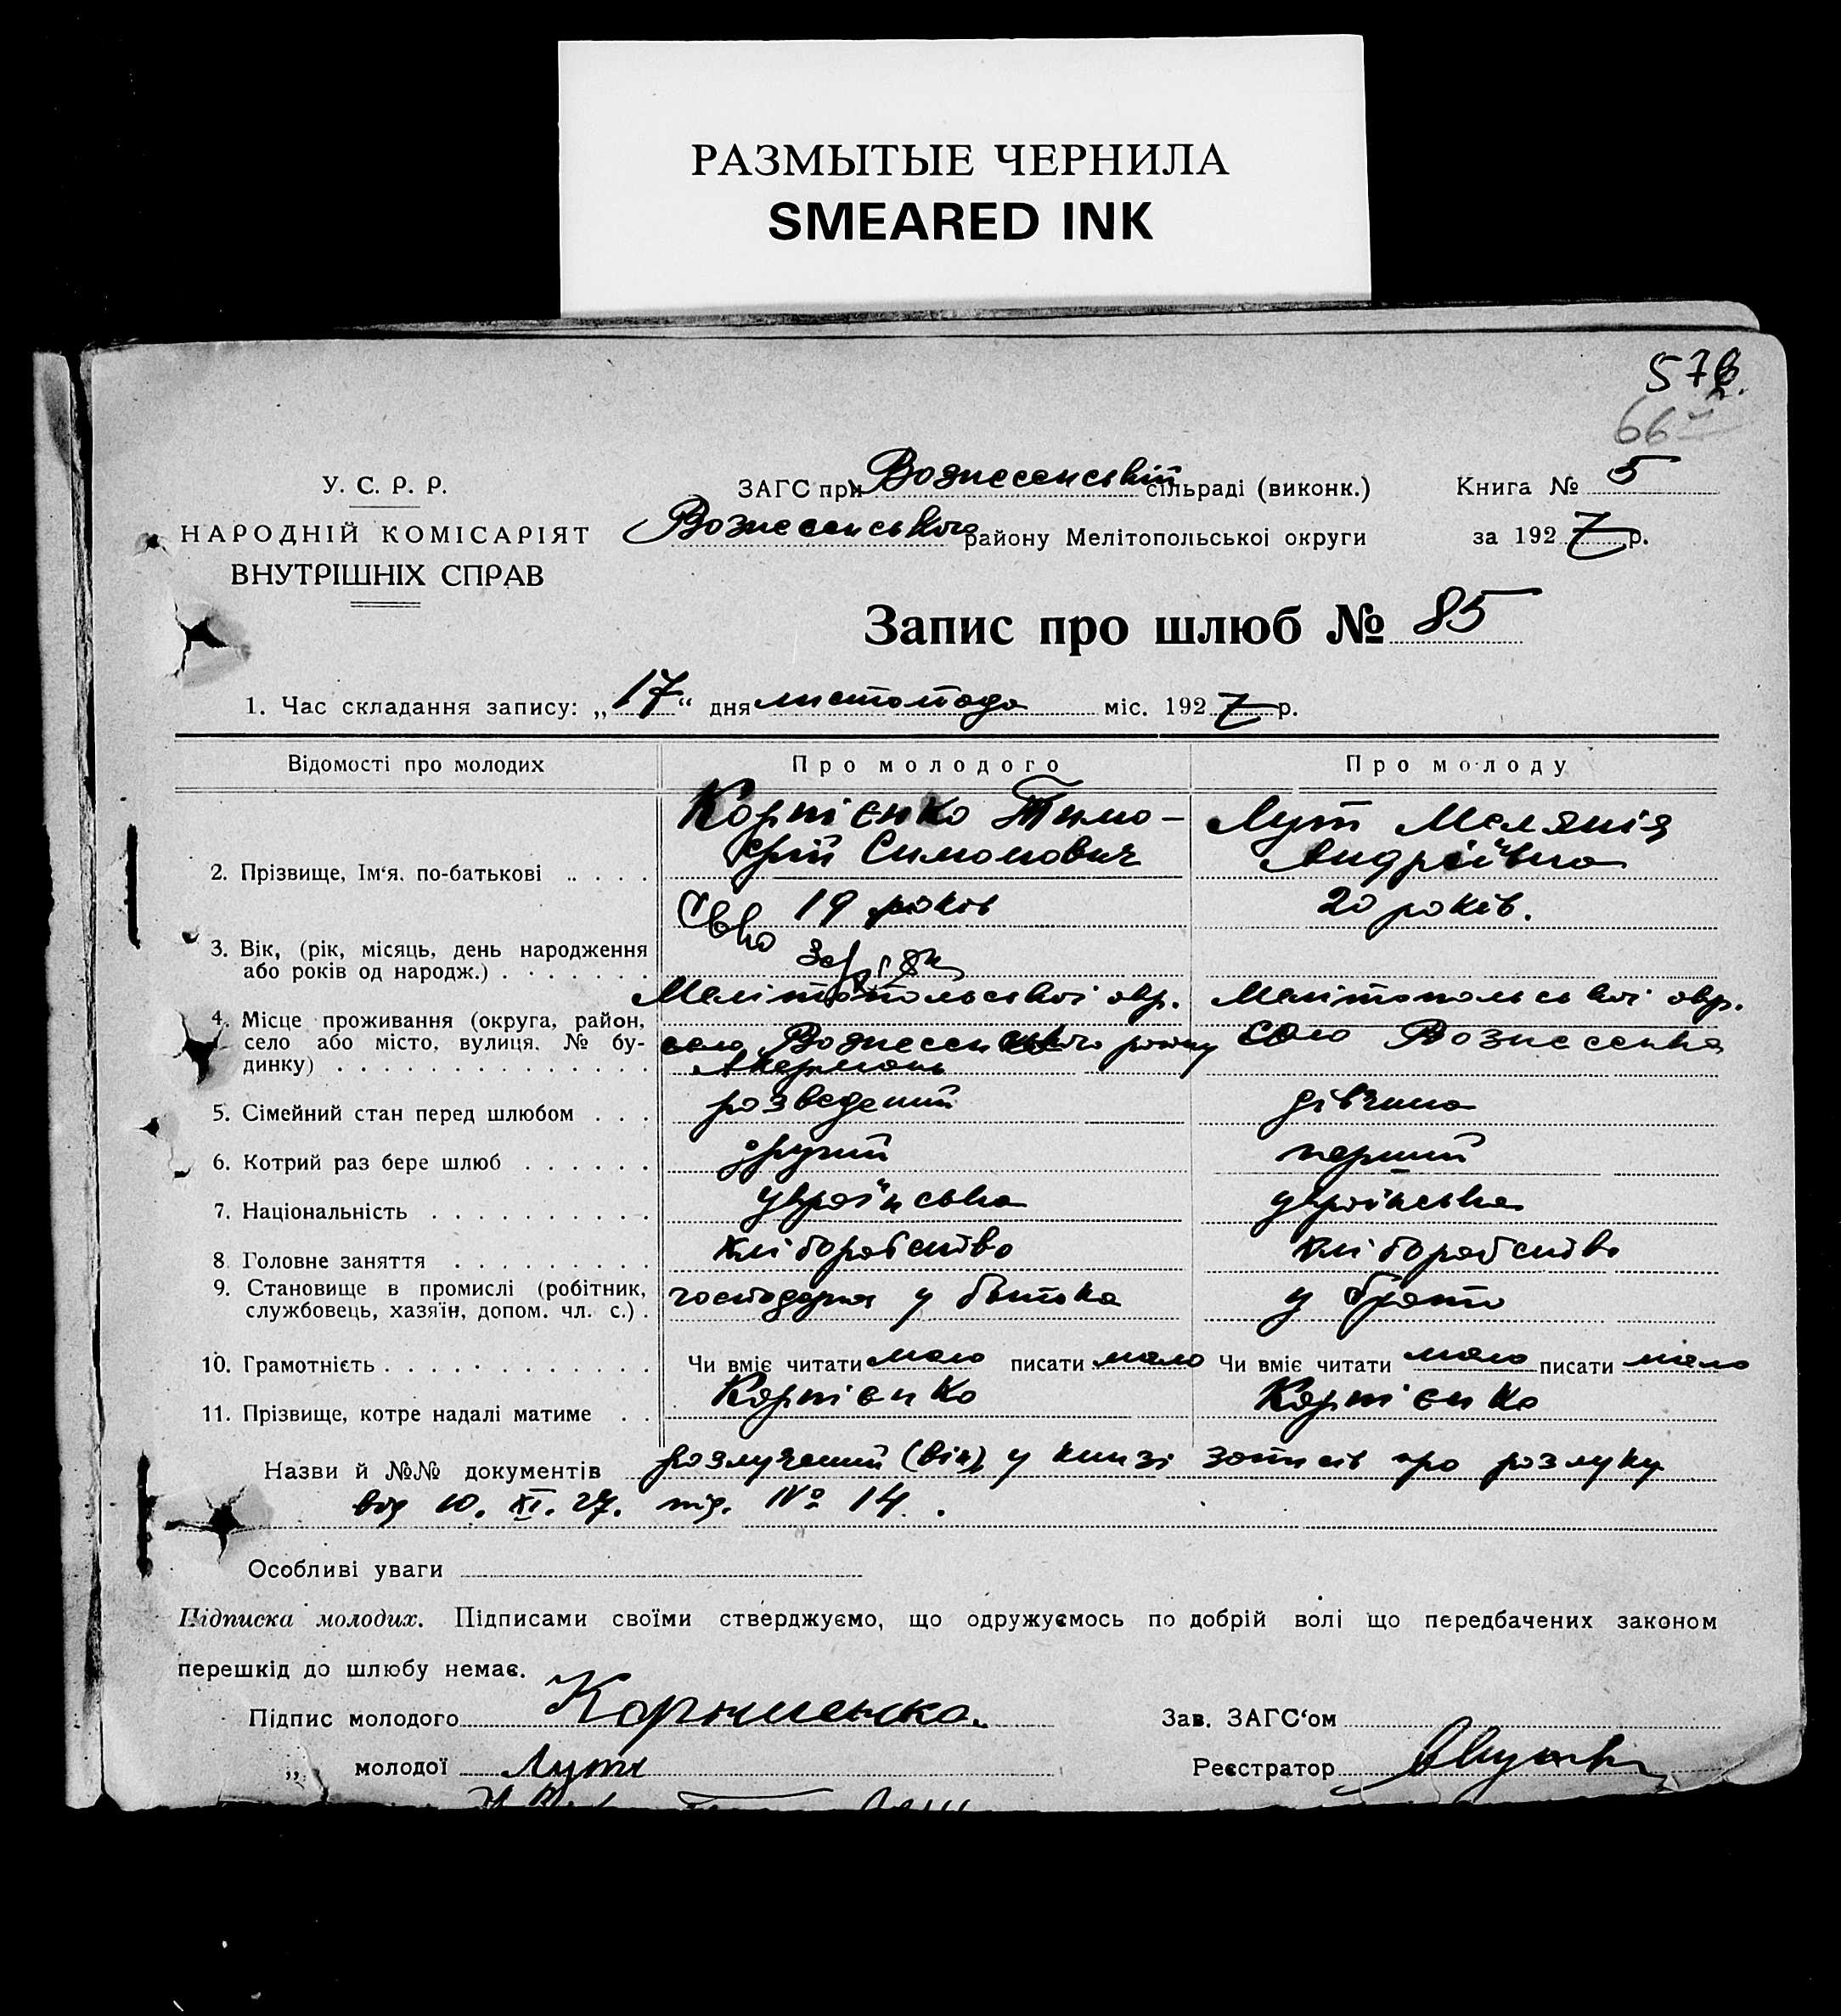 РАЗМЫТЫЕ ЧЕРНИЛА
SMEARED INK
57
66
У. С. Р. Р.
НАРОДНІЙ КОМІСАРІЯТ
ВНУТРІШНІХ СПРАВ
ЗАГС при Вознесенській сільраді (виконк.)
Вознесенського району Мелітопольської округи
Книга № 5
за 1927 р.
Запис про шлюб № 85
1. Час складання запису: „17“ дня листопада міс. 1927 р.
Відомості про молодих
Про молодого
Про молоду
2. Прізвище, Ім‘я. по-батькові
Корнієнко Тимо-
фій Симонович
Лут Меланія
Андріївна
3. Вік, (рік, місяць, день народження
або років од народж.)
19 років
20 років.
4. Місце проживання (округа, район,
село або місто, вулиця. № бу-
динку)
Мелітопольської окр.
село Вознесенського району
Акермень
Мелітопольської окр.
село Вознесенка
5. Сімейний стан перед шлюбом
розведений
дівчина
6. Котрий раз бере шлюб
другий
перший
7. Національність
українська
українська
8 Головне заняття
хліборобство
хліборобство
9. Становище в промислі (робітник,
службовець, хазяїн, допом. чл. с.)
господаря у батька
у брата
10. Грамотність
Чи вміє читати мало писати мало
Чи вміє читати мало писати мало
11. Прізвище, котре надалі матиме
Корнієнко
Корнієнко
Назви й №№ документів розлучений (він) у книзі записів про розлуку
від 10. XI. 27. під. № 14.
Особливі уваги
Підписка молодих. Підписами своїми стверджуємо, що одружуємось по добрій волі що передбачених законом
перешкід до шлюбу немає.
Підпис молодого Корниенко.
„ молодої Лут
Зав. ЗАГС‘ом
Реєстратор